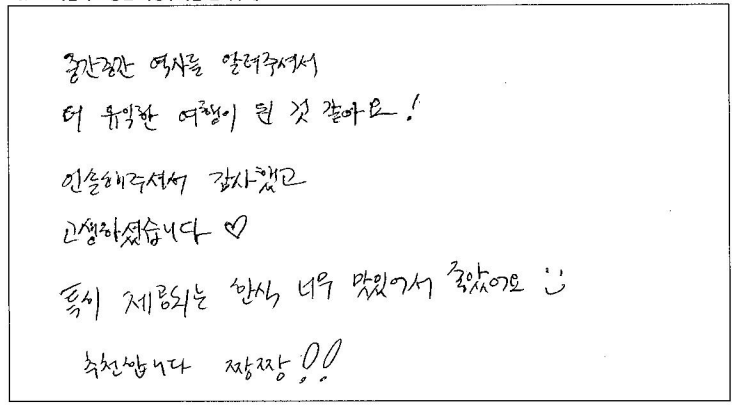 중간중간 역사를 알려주셔서
더 유익한 여행이 된 것 같아요!
인솔해주셔서 감사했고
고생하셨습니다 ♡
특히 제공되는 한식 너무 맛있어서 좋았어요 :)
추천합니다 짱짱!!